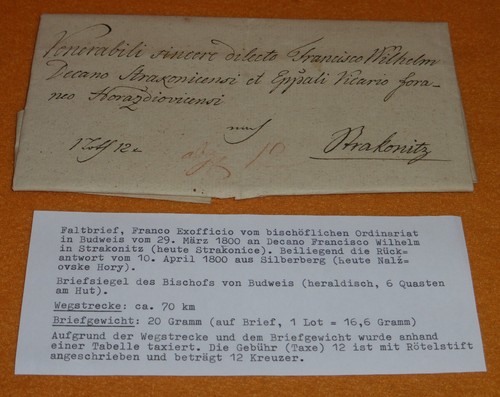 Venerabili sincere dilecto Francisco Wilhelm
Decano Strakonicensi et Eppāli Vicario fora-
neo Horazdiovicensi
nach
Strakonitz
Faltbrief, Franco Exofficio vom bischöflichen Ordinariat
in Budweis vom 29. März 1800 an Decano Francisco Wilhelm
in Strakonitz (heute Strakonice). Beiliegend die Rück=
antwort vom 10. April 1800 aus Silberberg (heute Nalž=
ovske Hory).
Briefsiegel des Bischofs von Budweis (heraldisch, 6 Quasten
am Hut).
Wegstrecke: ca. 70 km
Briefgewicht: 20 Gramm (auf Brief, 1 Lot = 16,6 Gramm)
Aufgrund der Wegstrecke und dem Briefgewicht wurde anhand
einer Tabelle taxiert. Die Gebühr (Taxe) 12 ist mit Rötelstift
angeschrieben und beträgt 12 Kreuzer.